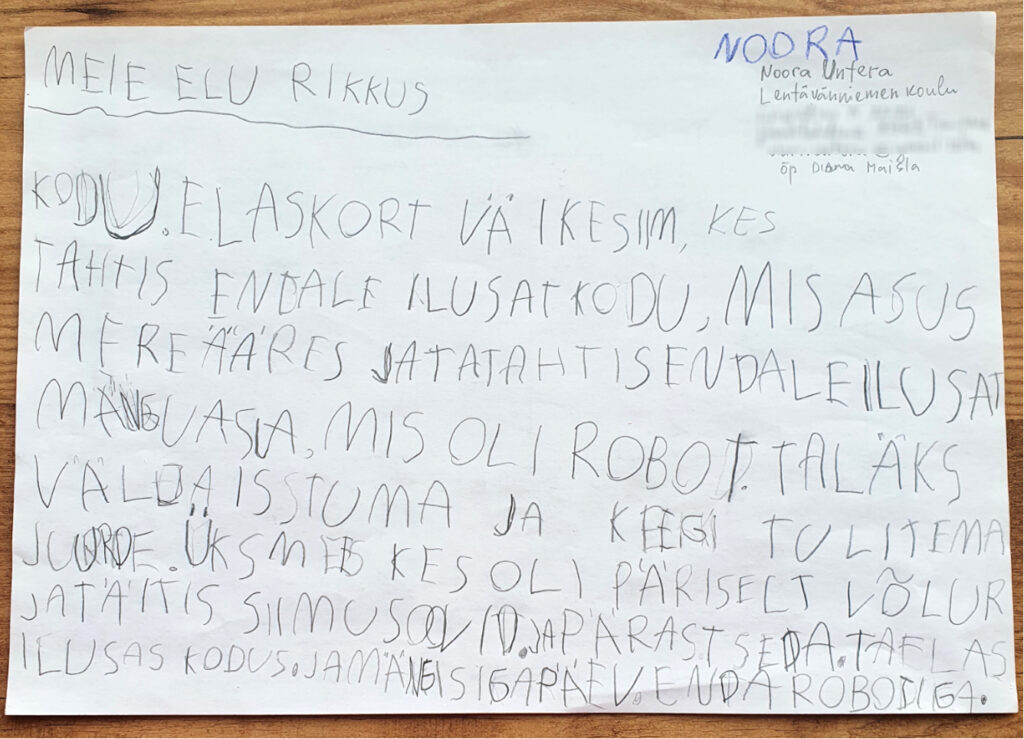 MEIE ELU RIKKUS
NOORA
Noora Untera
Lentävänniemen koulu
õp Diana Maisla
KODU. ELASKORT VÄIKESIIM, KES
TAHTIS ENDALE ILUSAT KODU, MIS ASUS
MEREÄÄRES JATATAHTIS ENDALE ILUSAT
MÄNGUASJA, MIS OLI ROBOT. TALÄKS
VÄLJA ISSTUMA JA KEEGI TULI TEMA
JUURDE. ÜKS MEES KES OLI PÄRISELT VÕLUR
JATÄITIS SIIMUSOOVID. JAPÄRAST SEDA. TAELAS
ILUSAS KODUS. JAMÄNGIS IGAPÄEV. ENDA ROBODIGA.